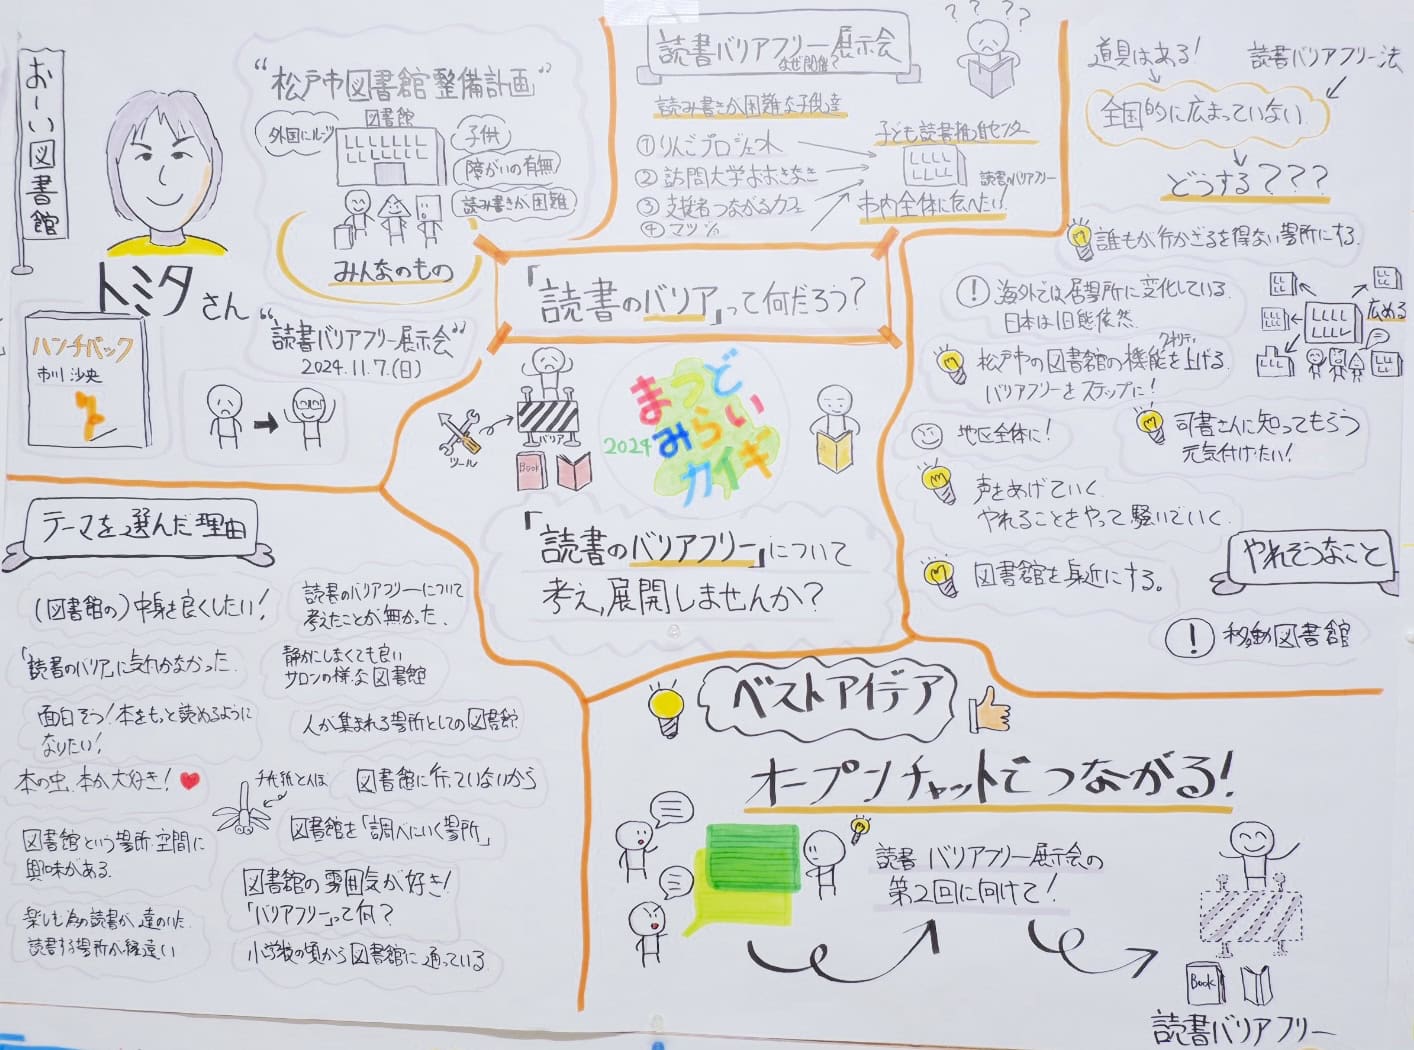 おーい図書館
トミタさん
"松戸市図書館整備計画"
図書館
外国にルーツ
子供
障がいの有無
読み書きが困難
みんなのもの
ハンチバック
市川沙央
"読書バリアフリー展示会"
2024.11.7.(日)
読書バリアフリー展示会
なぜ開催?
読み書きが困難な子供達
①りんごプロジェクト
②訪問大学おおきなき
③支援者つながるカフェ
④マツ
子ども読書推進センター
読書バリアフリー
市内全体に広べたい!
「読書のバリア」って何だろう?
ツール
バリア
Book
2024
まつど
みらい
カイギ
「読書のバリアフリー」について
考え、展開しませんか?
道具はある!
読書バリアフリー法
全国的に広まっていない
どうする???
誰もが行かざるを得ない場所にする.
! 海外では居場所に変化している.
日本は旧態依然.
広める
クオリティ
松戸市の図書館の機能を上げる.
バリアフリーをステップに!
地区全体に!
司書さんに知ってもらう
元気付けたい!
声をあげていく
やれることをやって騒いでいく.
図書館を身近にする。
やれそうなこと
! 移動図書館
テーマを選んだ理由
(図書館の)中身を良くしたい!
読書のバリアフリーについて
考えたことが無かった.
「読書のバリア」に気付かなかった.
静かにしなくても良い
サロンの様な図書館
面白そう!本をもっと読めるように
なりたい!
人が集まれる場所としての図書館.
本の虫、本が大好き!
千代紙とんぼ
図書館に行っていないから
図書館を「調べにいく場所」
図書館という場所・空間に
興味がある.
図書館の雰囲気が好き!
「バリアフリー」って何?
楽しむ為の読書が、遠のいた.
読書する場所が縁遠い
小学校の頃から図書館に通っている.
ベストアイデア
オープンチャットでつながる!
読書バリアフリー展示会の
第2回に向けて!
Book
読書バリアフリー